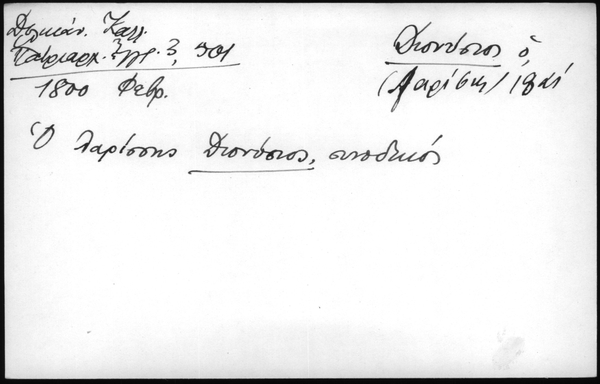 Δελικάν. Καλλ.
Πατριαρχ. Ἔγγρ. 3, 301
1800 Φεβρ.
Διονύσιος ὁ,
(Λαρίσης) 1821
Ὁ Λαρίσσης Διονύσιος, συνοδικός